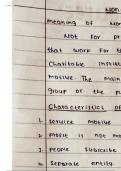 Non
Meaning of Non
Not for pr
that work for t
Charitable Instit
Motive The main
group or the p
Characteristics of
1. Service motive
2. Profit is not mo
3. People Subscribe
4. Separate entity.